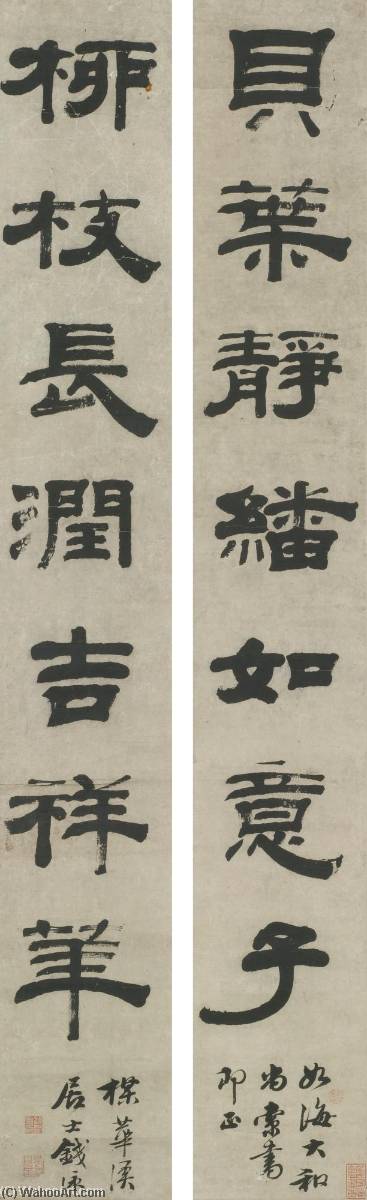 貝葉靜繙如意子
如海大和
尚索書
即正
柳枝長潤吉祥
楳華溪
居士錢泳
© WahooArt.com